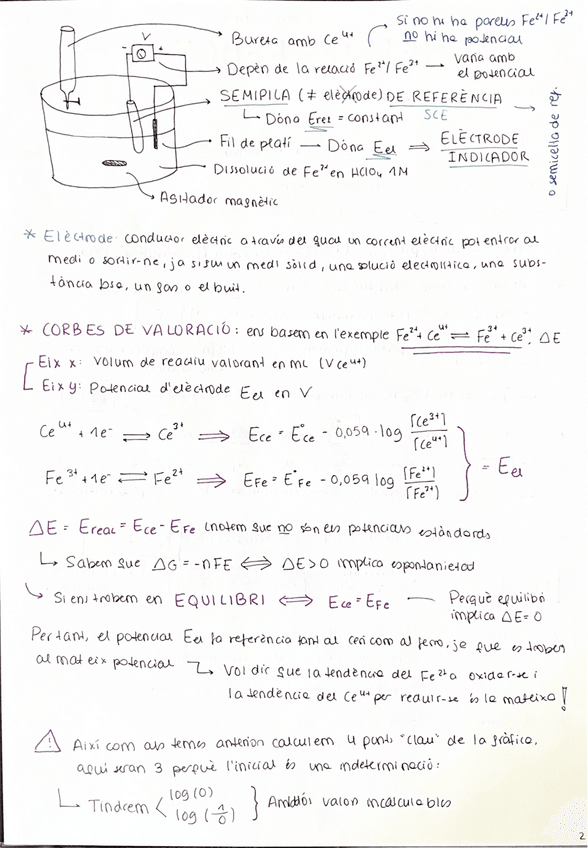 Bureta amb Ce⁴⁺
Si no hi ha parells Fe²⁺/Fe³⁺
no hi ha potencial
V
- +
Depèn de la relació Fe²⁺/Fe³⁺ → varia amb
el potencial
SEMIPILA (≠ elèctrode) DE REFERÈNCIA
o semicel·la de ref.
↳ Dóna Eref = constant SCE
Fil de platí → Dóna Eel ⇒ ELÈCTRODE
INDICADOR
Dissolució de Fe²⁺ en HClO₄ 1M
Agitador magnètic
* Elèctrode: conductor elèctric a través del qual un corrent elèctric pot entrar al
medi o sortir-ne, ja sigui un medi sòlid, una solució electrolítica, una subs-
tància fosa, un gas o el buit.
* CORBES DE VALORACIÓ: ens basem en l'exemple Fe²⁺ + Ce⁴⁺ ⇌ Fe³⁺ + Ce³⁺, ΔE
Eix x: Volum de reactiu valorant en mL (V Ce⁴⁺)
Eix y: Potencial d'elèctrode Eel en V
Ce⁴⁺ + 1e⁻ ⇌ Ce³⁺ ⇒ ECe = E°Ce - 0,059 · log [Ce³⁺]/[Ce⁴⁺]
= Eel
Fe³⁺ + 1e⁻ ⇌ Fe²⁺ ⇒ EFe = E°Fe - 0,059 log [Fe²⁺]/[Fe³⁺]
ΔE = Ereal = ECe - EFe (notem que no són els potencials estàndards
↳ Sabem que ΔG = -nFE ⇔ ΔE>0 implica espontanietat
↳ Si ens trobem en EQUILIBRI ⇔ ECe = EFe — Perquè equilibri
implica ΔE=0
Per tant, el potencial Eel fa referència tant al ceri com al ferro, ja que es troben
al mateix potencial ↳ Vol dir que la tendència del Fe²⁺ a oxidar-se i
la tendència del Ce⁴⁺ per reduir-se és la mateixa!
⚠ Així com als temes anteriors calculem 4 punts "clau" de la gràfica,
aquí seran 3 perquè l'inicial és una indeterminació:
↳ Tindrem < log(0)
log(1/0) } Ambdós valors incalculables
2